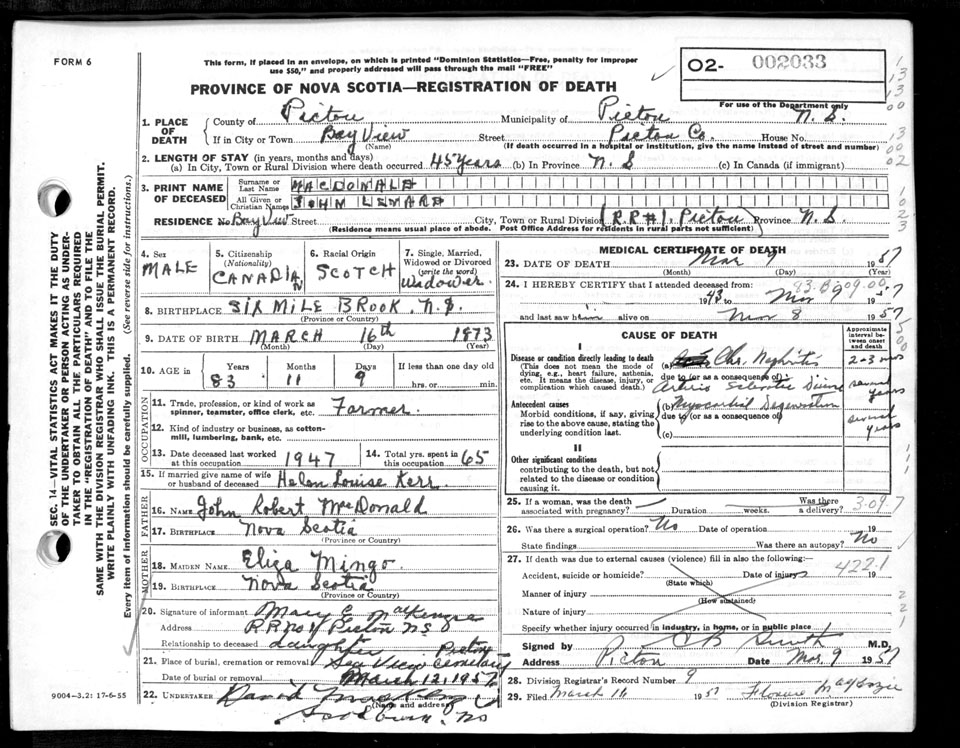 FORM 6
This form, if placed in an envelope, on which is printed "Dominion Statistics—Free, penalty for improper
use $50," and properly addressed will pass through the mail "FREE"
O2- 002033
For use of the Department only
PROVINCE OF NOVA SCOTIA—REGISTRATION OF DEATH
1. PLACE OF DEATH
County of Pictou Municipality of Pictou N.S.
If in City or Town Bay View Street Pictou Co. House No.
(Name) (If death occurred in a hospital or institution, give the name instead of street and number)
2. LENGTH OF STAY (in years, months and days)
(a) In City, Town or Rural Division where death occurred 45 years (b) In Province N.S (c) In Canada (if immigrant)
3. PRINT NAME OF DECEASED
Surname or Last Name MACDONALD
All Given or Christian Names JOHN LENARD
RESIDENCE No. Bay View Street City, Town or Rural Division (R.R#1) Pictou Province N.S.
(Residence means usual place of abode. Post Office Address for residents in rural parts not sufficient)
4. Sex MALE
5. Citizenship (Nationality) CANADIAN
6. Racial Origin SCOTCH
7. Single, Married, Widowed or Divorced (write the word) Widower
8. BIRTHPLACE SIX MILE BROOK, N.S.
(Province or Country)
9. DATE OF BIRTH MARCH 16th 1873
(Month) (Day) (Year)
10. AGE in Years 83 Months 11 Days 9 If less than one day old hrs. or min.
OCCUPATION
11. Trade, profession, or kind of work as spinner, teamster, office clerk, etc. Farmer
12. Kind of industry or business, as cotton-mill, lumbering, bank, etc.
13. Date deceased last worked at this occupation 1947
14. Total yrs. spent in this occupation 65
15. If married give name of wife or husband of deceased Helen Louise Kerr
FATHER
16. NAME John Robert McDonald
17. BIRTHPLACE Nova Scotia
(Province or Country)
MOTHER
18. MAIDEN NAME Eliza Mingo
19. BIRTHPLACE Nova Scotia
(Province or Country)
20. Signature of informant Mary E. MacKenzie
Address R.R No 1 Pictou NS
Relationship to deceased daughter
21. Place of burial, cremation or removal Sea View Cemetery Pictou
Date of burial or removal March 12, 1957
22. UNDERTAKER David
(Name and address)
9004-3.2: 17-6-55
MEDICAL CERTIFICATE OF DEATH
23. DATE OF DEATH Mar 9 1957
(Month) (Day) (Year)
24. I HEREBY CERTIFY that I attended deceased from:
1943 to Mar 9 1957
and last saw him alive on Mar 8 1957
CAUSE OF DEATH
Approximate interval between onset and death
I
Disease or condition directly leading to death
(This does not mean the mode of dying, e.g., heart failure, asthenia, etc. It means the disease, injury, or complication which caused death.)
(a) Chr. Nephritis 2-3 mos
due to (or as a consequence of)
Arterio Sclerotic Disease several years
Antecedent causes
Morbid conditions, if any, giving rise to the above cause, stating the underlying condition last.
(b) Myocardial Degeneration several years
due to (or as a consequence of)
(c)
II
Other significant conditions
contributing to the death, but not related to the disease or condition causing it.
25. If a woman, was the death associated with pregnancy? Duration weeks. Was there a delivery?
26. Was there a surgical operation? No Date of operation 19
State findings Was there an autopsy? No
27. If death was due to external causes (violence) fill in also the following:—
Accident, suicide or homicide? Date of injury 19
(State which)
422.1
Manner of injury
(How sustained)
Nature of injury
Specify whether injury occurred in industry, in home, or in public place
Signed by C B Smith M.D.
Address Pictou Date Mar. 9 1957
28. Division Registrar's Record Number 9
29. Filed March 16 1957 Florence MacKenzie
(Division Registrar)
SEC. 14—VITAL STATISTICS ACT MAKES IT THE DUTY
OF THE UNDERTAKER OR PERSON ACTING AS UNDER-
TAKER TO OBTAIN ALL THE PARTICULARS REQUIRED
IN THE "REGISTRATION OF DEATH" AND TO FILE THE
SAME WITH THE DIVISION REGISTRAR WHO SHALL ISSUE THE BURIAL PERMIT.
WRITE PLAINLY WITH UNFADING INK. THIS IS A PERMANENT RECORD.
Every item of information should be carefully supplied. (See reverse side for instructions.)